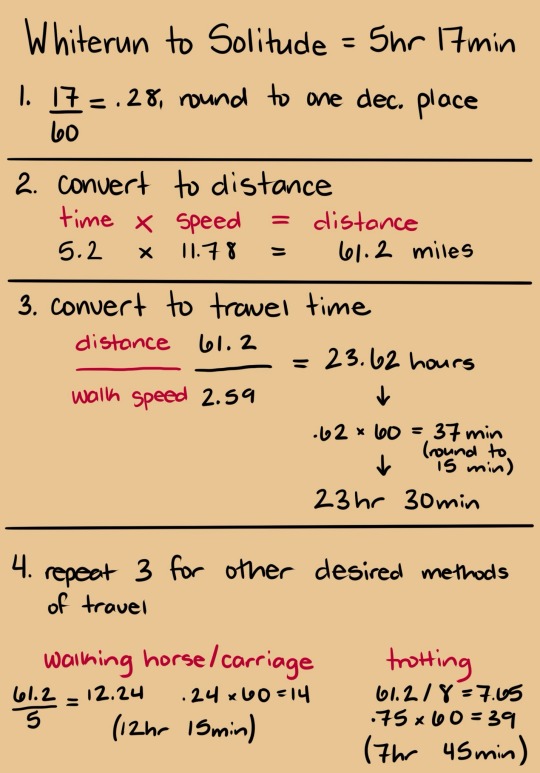 Whiterun to Solitude = 5hr 17min
1. 17/60 = .28, round to one dec. place
2. convert to distance
time x speed = distance
5.2 x 11.78 = 61.2 miles
3. convert to travel time
distance/walk speed 61.2/2.59 = 23.62 hours
↓
.62 x 60 = 37 min
(round to
15 min)
↓
23hr 30min
4. repeat 3 for other desired methods
of travel
walking horse/carriage
61.2/5 = 12.24 .24 x 60 = 14
(12hr 15min)
trotting
61.2 / 8 = 7.65
.75 x 60 = 39
(7hr 45min)